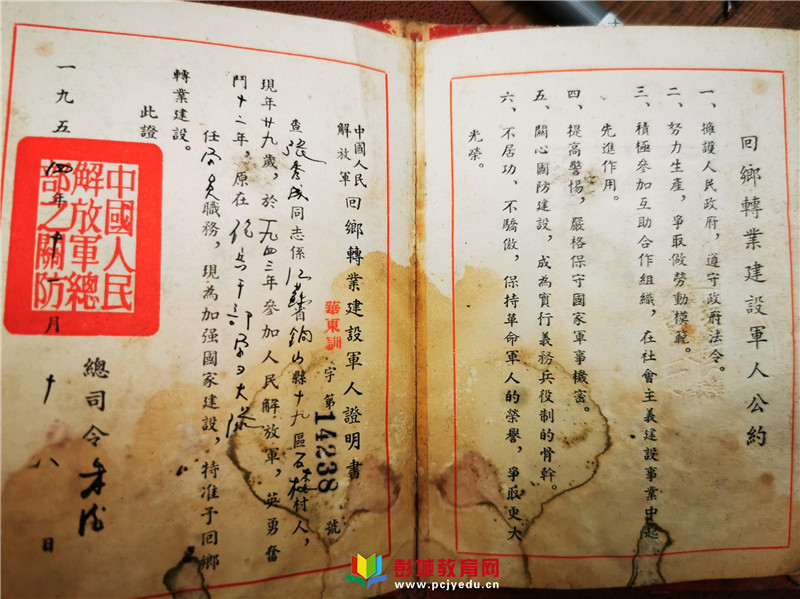 回鄉轉業建設軍人公約
一、擁護人民政府，遵守政府法令。
二、努力生產，爭取做勞動模範。
三、積極參加互助合作組織，在社會主義建設事業中起
先進作用。
四、提高警惕，嚴格保守國家軍事機密。
五、關心國防建設，成為實行義務兵役制的骨幹。
六、不居功、不驕傲，保持革命軍人的榮譽，爭取更大
光榮。
中國人民
解放軍
回鄉轉業建設軍人證明書
華東訓 字第 14238 號
查張秀成同志係江蘇省銅山縣十九區石樓村人，
現年廿九歲，於一九四三年參加人民解放軍，英勇奮
鬥十二年，原在 大隊
任 員職務，現為加强國家建設，特准予回鄉
轉業建設。
此證
總司令朱德
一九五四年十一月十八日
中國人民
解放軍總
部之關防
彭城教育网
www.pcjyedu.cn